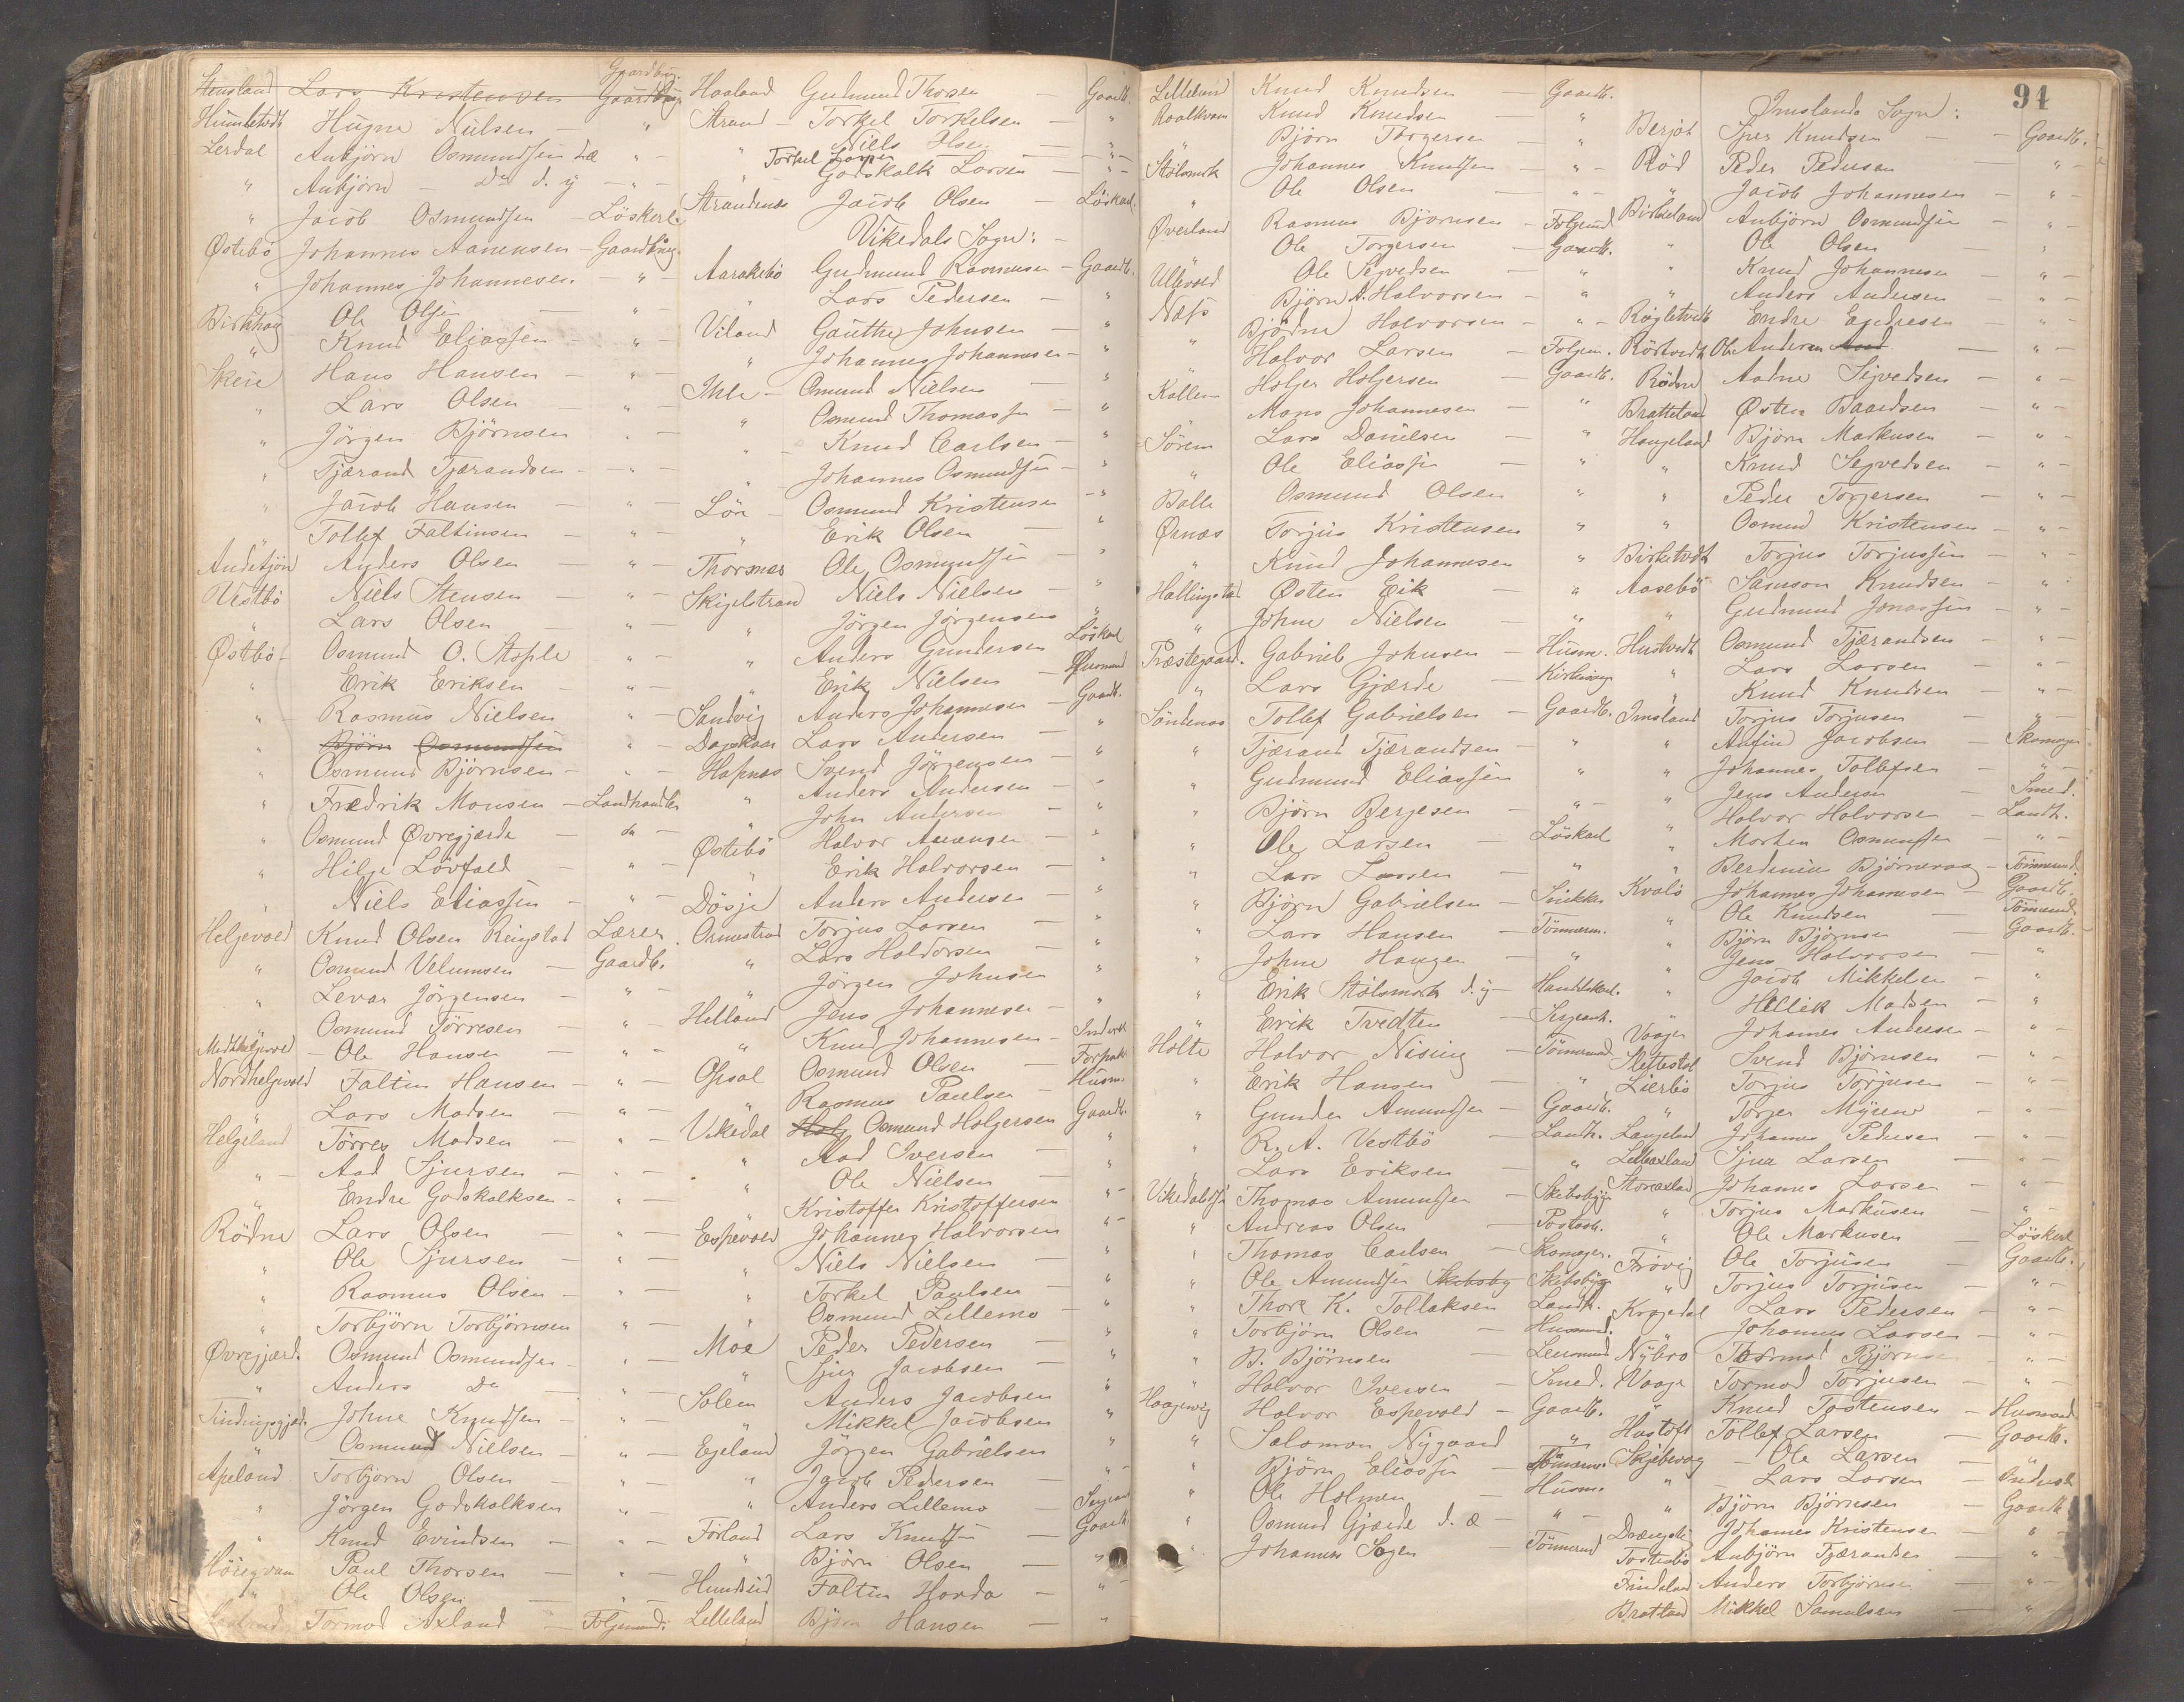 Stensland Lars Kristensen Gaardbrug.
Humletvedt Hugne Nielsen — "
Lerdal Anbjörn Osmundsen d. æ " —
" Anbjörn — Do d. y — " —
" Jacob Osmundsen — Löskarl.
Østebö Johannes Aanensen — Gaardbrug.
" Johannes Johannesen. — "
Birkhaug Ole Olsen — " —
" Knud Eliassen — " —
Skeie Hans Hansen — " —
" Lars Olsen — "
" Jörgen Björnsen " —
" Tjærand Tjærandsen — " —
" Jacob Hansen — " —
" Tollef Faltinsen — " —
Andetjön Anders Olsen — " —
Vestbö Niels Stensen — " —
" Lars Olsen — " —
Østbö — Osmund O. Stople " —
" Erik Eriksen — " —
" — Rasmus Nielsen " —
" Björn Osmundsen " —
" Osmund Björnsen — " —
" Fredrik Monsen — Landhandler
" Osmund Øvregjærde — do —
" Hilge Lövfald — " —
" Niels Eliassen — " —
Helgevold Knud Olsen Ringstad Lærer
" Osmund Velumsen — Gaardb.
" Levar Jörgensen — " —
Osmund Törresen — " —
Medhelgevold — Ole Hansen — " —
Nordhelgevold Faltin Hansen — " —
" Lars Madsen — " —
Helgeland Törres Madsen — " —
" Aad Sjursen — " —
" Endre Godskalksen — " —
Rödne Lars Olsen — " —
" Ole Sjursen — " —
" Rasmus Olsen — " —
" Torbjörn Torbjörnsen " —
Øvregjærd. Osmund Osmundsen — " —
" Anders Do — " —
Johne Knudsen — " —
" Osmund Nielsen — " —
Apeland Torbjörn Olsen — " —
" Jörgen Godskalksen " —
" Knud Evindsen — " —
Paul Thorsen — " —
" Ole Olsen — " —
Tormod Axland — Folgemand.
Haaland Gudmund Thorsen — Gaardb.
Strand — Torkel Torkelsen — "
" Niels Olsen — "
Torkel Larsen — " —
" Godskalk Larsen — " —
Strandenes Jacob Olsen — Löskarl.
Vikedals Sogn: —
Aarakebö Gudmund Rasmusen — Gaardb.
" Lars Pedersen — "
Viland Gauthe Johnsen — "
" Johannes Johannesen — "
Ihle — Omund Nielsen — "
" Osmund Thomassen — "
" Knud Carlsen — "
" Johannes Osmundsen — "
Lön — Osmund Kristensen — "
" Erik Olsen — "
Thorsnes Ole Osmundsen — "
Skigelstrand Niels Nielsen — "
" Jörgen Jörgensen "
" Anders Gundersen Löskarl
" Erik Nielsen — Husmand
Sandvig Anders Johannesen — Gaardb.
Dagskaar Lars Andersen — "
Hapnes Svend Jörgensen — "
" Anders Andersen — "
" John Andersen — "
Østebö Halvor Aanensen — "
" Erik Halvorsen — "
Dösje Anders Andersen — "
Ormestrad Torjus Larsen — "
" Lars Haldorsen "
" Jörgen Johnsen "
Helland Jens Johannesen — "
" Knud Johannesen — Inderst
Opsal Osmund Olsen — Forpakt.
" Rasmus Paulsen Husm.
Vikedal Holg Osmund Holgersen Gaardb.
" Aad Iversen — "
" Ole Nielsen — "
" Kristoffer Kristoffersen " —
Espevold Johannes Halvorsen " —
" Niels Nielsen — "
" Torkel Paulsen "
" Osmund Lillemo — "
Moe Peder Pedersen — "
" Sjur Jacobsen — "
Solem Anders Jacobsen "
" Mikkel Jacobsen "
Egeland Jörgen Gabrielsen "
" Jacob Pedersen — " —
" Anders Lillemo — Sergeant
Förland Lars Knudsen — Gaardb.
" Björn Olsen — "
Hundseid Faltin Horda — " —
Lilleland Björn Hansen — "
Lilleland Knud Knudsen — Gaardb.
Raalkvam Knud Knudsen — "
" Björn Torgersen — "
Stölsmrk Johannes Knudsen — " —
" Ole Olsen — " —
Øverland Rasmus Bjørnsen — Folgmand
" Ole Torgersen — Gaardb.
Ullevold Ole Segvedsen — "
Næss Björn A. Halvorsen — "
" Bjödne Halvorsen — " —
" Halvor Larsen — Folgem.
Kallem Holger Holgersen — Gaardb.
" Mons Johannesen — "
Sörem Lars Danielsen — "
" Ole Eliassen — "
Balle Osmund Olsen "
Ørnæs Torjus Kristensen "
" Knud Johannesen "
Hallingstad Østen Eik — "
" Johne Nielsen — " "
Præstegaard. Gabriel Johnsen — Husm.
" Lars Gjærde — Kirkesang.
Söndenaa Tollef Gabrielsen — Gaardb.
" Tjærand Tjærandsen — "
" Gudmund Eliassen "
" Björn Bergesen — " —
" Ole Larsen — Löskarl
" Lars Larsen — "
" Björn Gabrielsen — Snikker
" Lars Hansen — Tömmerm.
" Johne Haugen — "
" Erik Stölsmark d. y — Handelskarl.
" Erik Tvedten — Sergeant.
Holte Halvor Nising — Tömmermd
" Erik Hansen — "
" Gunder Amundsen — Gaardb.
" R. A. Vestbö — Landh.
" Lars Eriksen — "
Vikedalsös Thomas Amundsen — Skibsbygr
" Andreas Olsen — Postaab.
" Thomas Carlsen — Skomager.
" Ole Amundsen Skibsby Skibsbygr
" Thore K. Tollaksen Landh.
" Torbjörn Olsen — Husmand.
" B. Björnsen — Lensmand
" Halvor Iversen — Smed.
Haagenvig Halvor Espevold — Gaardb.
" Salomon Nygaard "
" Björn Eliassen — Tömmerm.
" Ole Holmen — Husm.
" Osmund Gjærde d. æ — " —
" Johannes — Tömmermd
94
Imslands Sogn:
Berjot Sjur Knudsen — — Gaardb.
Röd Peder Pedersen — " —
" Jacob Johannesen — " —
Birkeland Anbjörn Osmundsen — " —
" Ole Olsen — "
" Knud Johannesen — " —
" Anders Andersen — " —
Rögletvedt Endre Endresen — " —
Rörtvedt Ole Andersen And — " —
Rödne Aadne Sejvedsen — " —
Bratteland Østen Baardsen — " —
Haugeland Björn Markusen — " —
" Knud Sejvedsen — " —
" Peder Torgersen — " —
" Osmund Kristensen — " —
Birketvedt Torjus Torjussen — " —
Aasebö Samson Knudsen — " —
" Gudmund Jonassen — " —
Hustvedt Osmund Tjærandsen — " —
" Lars Larsen — " —
" Knud Knudsen — " —
Imsland Torjus Torjusen — " —
" Anfind Jacobsen — Skomager
" Johannes Tollefsen — " —
" Jens Andersen — Smed.
" Halvor Halvorsen — Landh.
" Morten Osmundsen — " —
" Berdinius Björnevaag — Tömmermd.
Kvalö Johannes Johannesen — Gaardb.
" Ole Knudsen — Tömmermd
" Björn Björnsen — Gaardb.
" Jens Halvorsen — "
" Jacob Mikkelsen — "
" Hellik Madsen — "
Vaagen Johannes Andersen — " —
Slettestöl Svend Björnsen — " —
Lierbö Torjus Torjusen — " —
" Torger Myrene — " —
Langeland Johannes Pedersen — " —
Lilleaxland Sjur Larsen — " —
Storaxlad Johannes Larsen — " —
" Torjus Markusen — " —
" Ole Markusen — Löskarl
Frövig Ole Torjusen — Gaardb.
" Torjus Torjusen — " —
Krogedal Lars Pedersen — " —
" Johannes Larsen — " —
Nybro Thormod Björnsen " —
Vaage Tormod Torjusen — " —
" Knud Tostensen — Husmand
Hustoft Tollef Larsen — Gaardb.
Skjebevaag — Ole Larsen — "
" Lars Larsen — Inderst
" Björn Björnsen — Gaardb.
Johannes Kristensen — " —
Tostenbö Anbjörn Tjærandsen — " —
Frindsland Anders Torbjörnsen — " —
Bratland Mikkel Samulsen — "